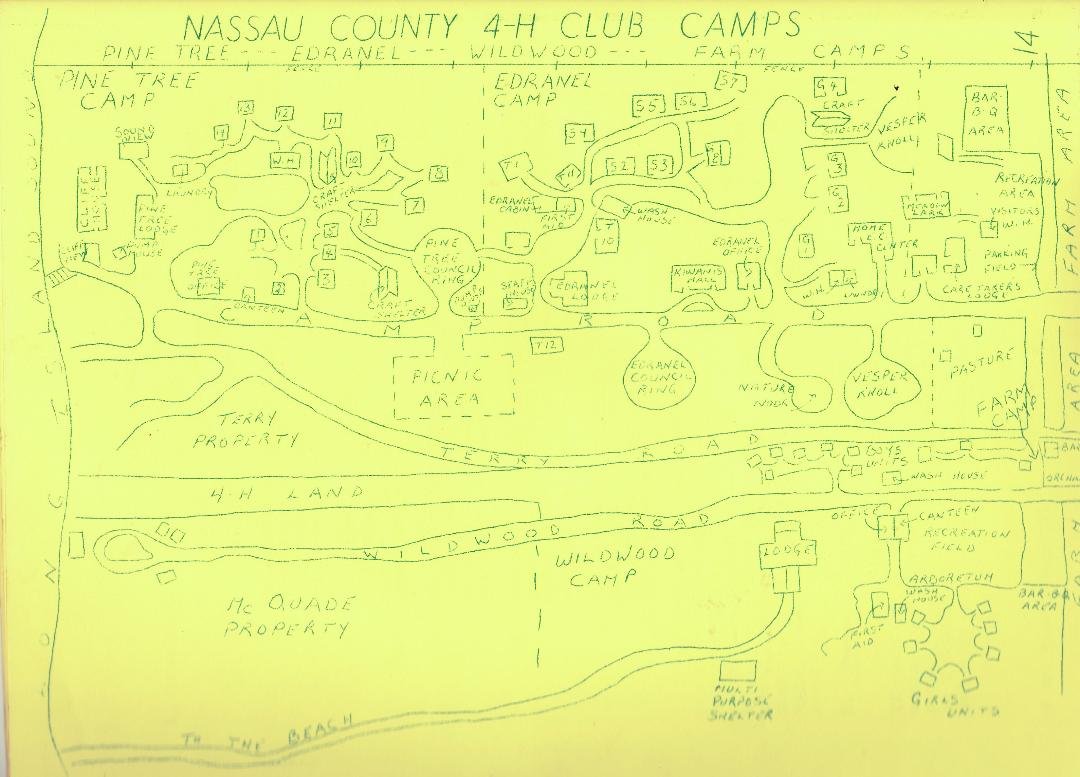 NASSAU COUNTY 4-H CLUB CAMPS
PINE TREE --- EDRANEL --- WILDWOOD --- FARM CAMPS
14
FENCE
FENCE
PINE TREE
CAMP
EDRANEL
CAMP
SOUND
VIEW
LAUNDRY
W.H.
13
12
11
10
9
8
7
6
5
4
3
CRAFT
SHELTER
PINE
TREE
LODGE
PUMP
HOUSE
PINE
TREE
OFFICE
CANTEEN
CRAFT
SHELTER
PINE
TREE
COUNCIL
RING
STAFF
HOUSE
EDRANEL
CABIN
FIRST
AID
WASH
HOUSE
T1
T
10
S4
S5
S6
S7
S2
S3
EDRANEL
LODGE
KIWANIS
HALL
EDRANEL
OFFICE
G4
CRAFT
SHELTER
G
3
G
2
G
1
VESPER
KNOLL
BAR-
B-Q
AREA
RECREATION
AREA
VISITORS
W.H.
MEADOW
LARK
HOME
EC
CENTER
W.H.
LAUNDRY
PARKING
FIELD
CARE TAKERS
LODGE
FARM AREA
CAMP ROAD
T12
PICNIC
AREA
EDRANEL
COUNCIL
RING
NATURE
NOOK
VESPER
KNOLL
PASTURE
FARM
CAMP
TERRY
PROPERTY
TERRY ROAD
4-H LAND
BOYS
UNITS
WASH HOUSE
WILDWOOD ROAD
WILDWOOD
CAMP
LODGE
OFFICE
CANTEEN
RECREATION
FIELD
ARBORETUM
WASH
HOUSE
FIRST
AID
BAR-B-Q
AREA
GIRLS
UNITS
MC QUADE
PROPERTY
MULTI
PURPOSE
SHELTER
TO THE BEACH
LONG ISLAND SOUND